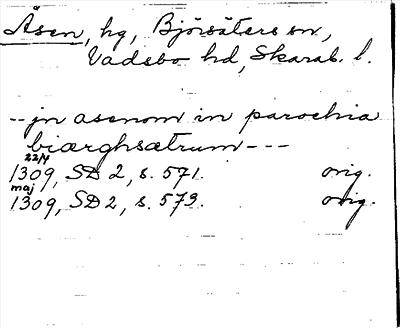 Åsen, hg, Björsäters sn,
Vadsbo hd, Skarab. l.
-- jn asenom in parochia
biærghsætrum ---
22/4
1309, SD 2, s. 571. orig.
maj
1309, SD 2, s. 573. orig.